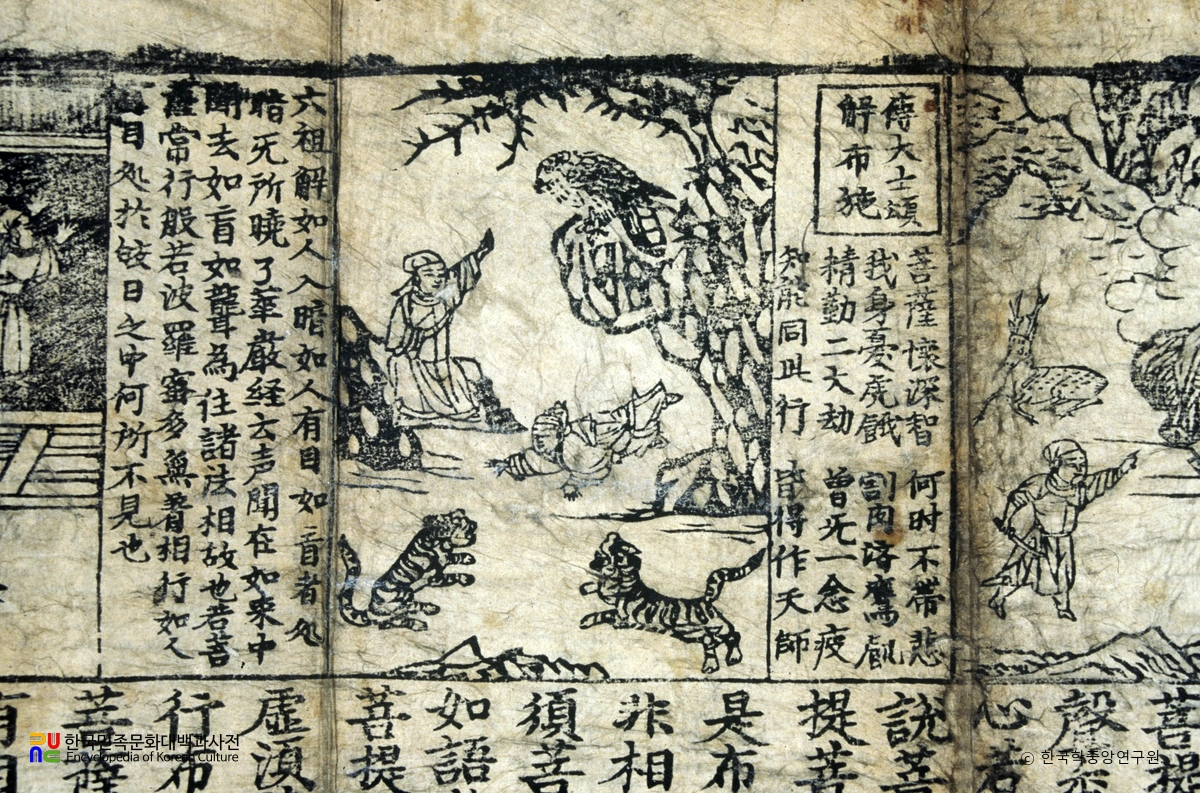 傅大士頌
解布施
菩薩懷深智 何时不帶悲
我身憂虎餓 割肉濟鷹飢
精勤二大劫 曾旡一念疲
知能同此行 皆得作天師
六祖解如人入暗如人有目如盲者処
暗旡所曉了華嚴経云声聞在如来中
聞去如盲如聾為住諸法相故也若菩
薩常行般若波羅宻多無著相行如人
有目処於皎日之中何所不見也
菩提
心若
說菩
提菩
是布
非相
須菩
如語
菩提
虛湏
行布
菩薩
한국민족문화대백과사전
Encyclopedia of Korean Culture
© 한국학중앙연구원